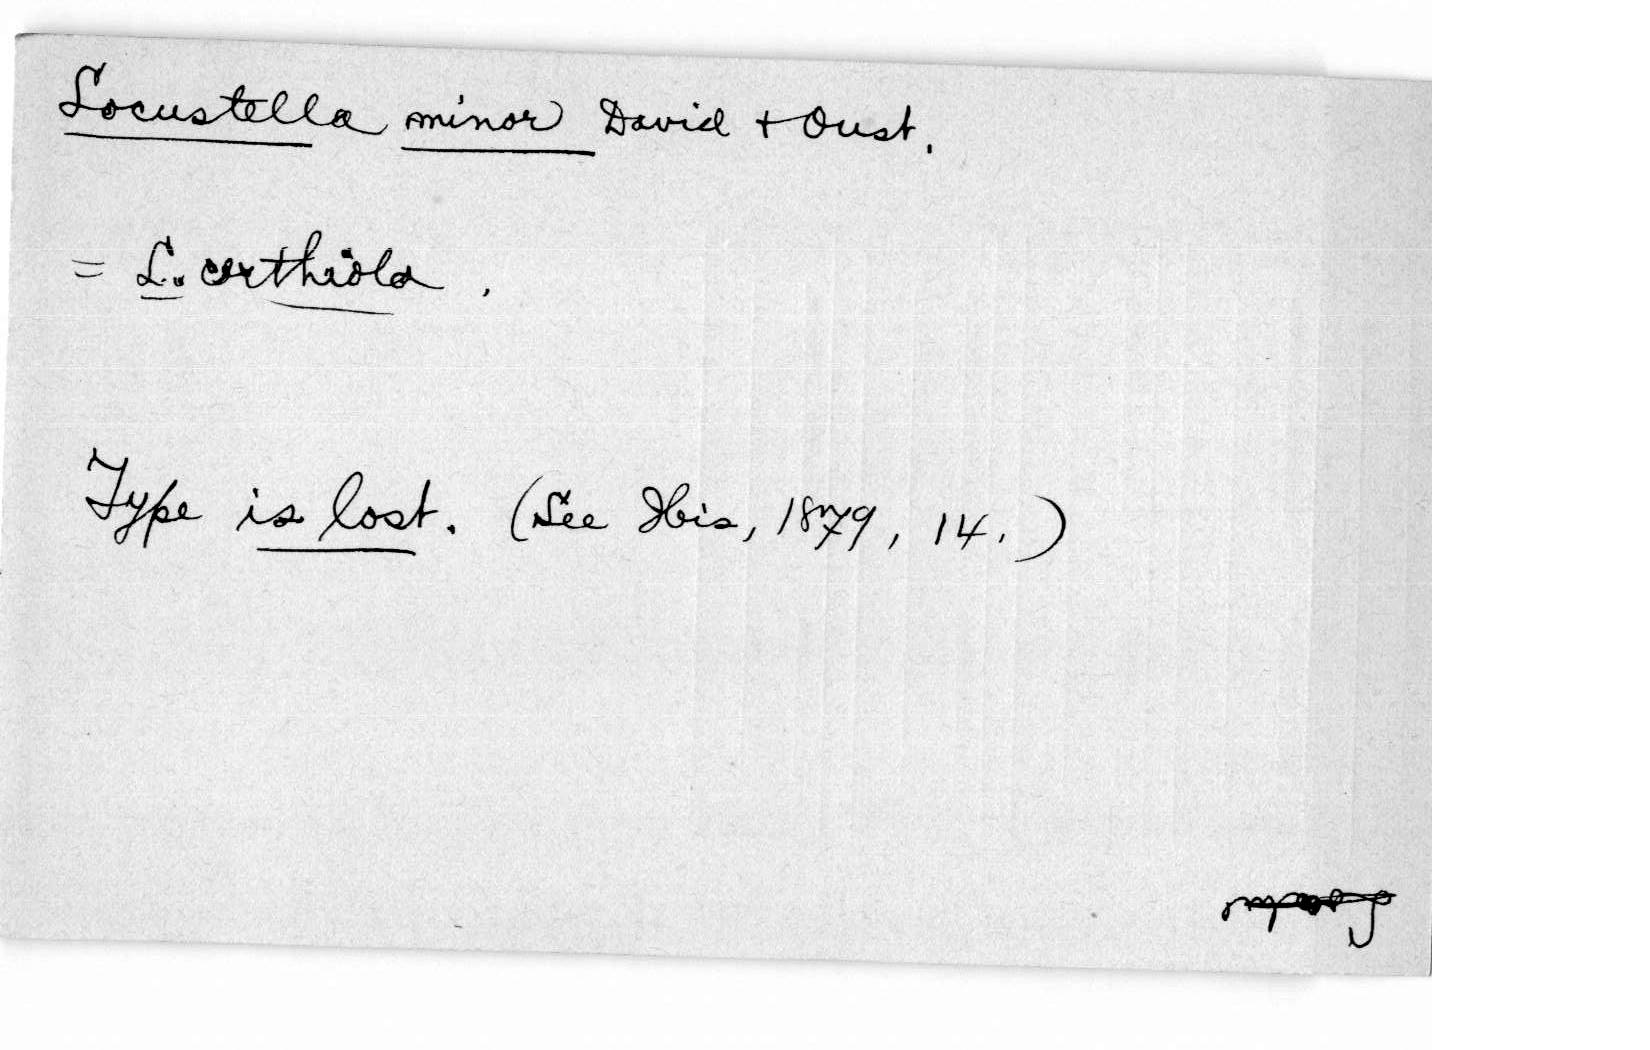 Locustella minor David + Oust.
= L. certhiola.
Type is lost. (See Ibis, 1879, 14.)